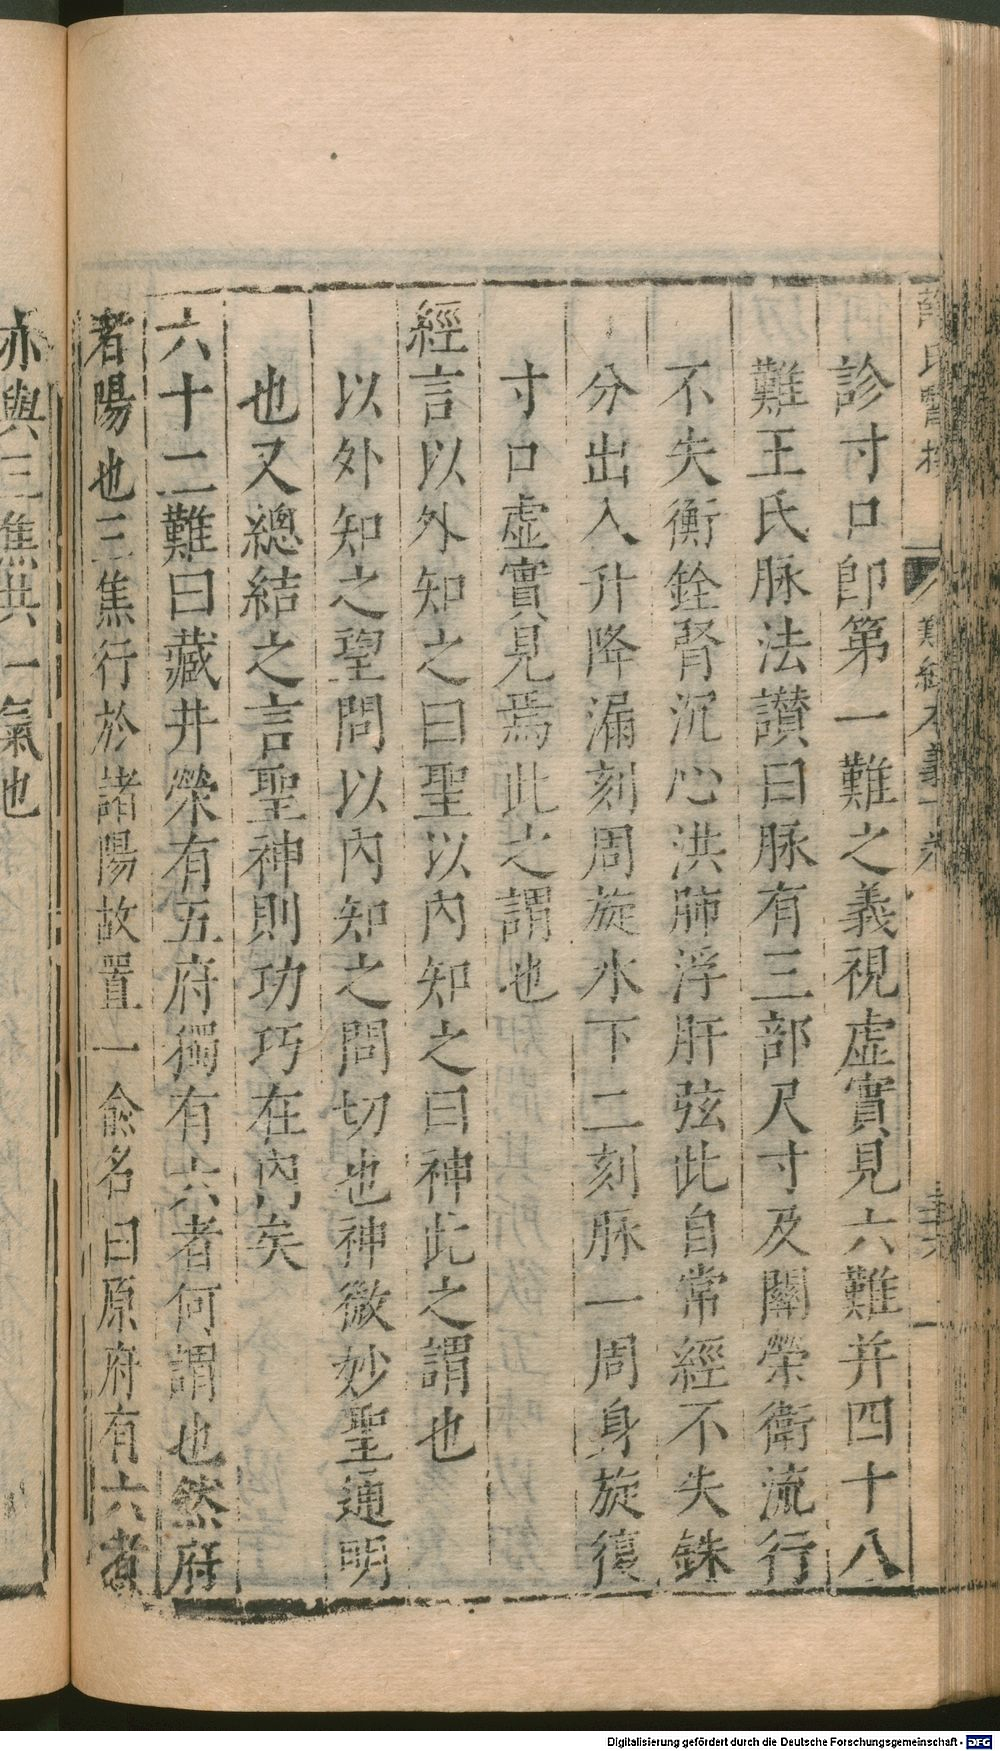 診寸口即第一難之義視虚實見六難并四十八
難王氏脉法讃曰脉有三部尺寸及關榮衛流行
不失衡銓腎沉心洪肺浮肝弦此自常經不失銖
分出入升降漏刻周旋水下二刻脉一周身旋復
寸口虚實見焉此之謂也
經言以外知之曰聖以内知之曰神此之謂也
以外知之聖問以内知之問切也神微妙聖通明
也又總結之言聖神則功巧在内矣
六十二難曰藏井滎有五府獨有六者何謂也然府
者陽也三焦行於諸陽故置一俞名曰原府有六者
亦與三焦共一氣也
Digitalisierung gefördert durch die Deutsche Forschungsgemeinschaft - DFG